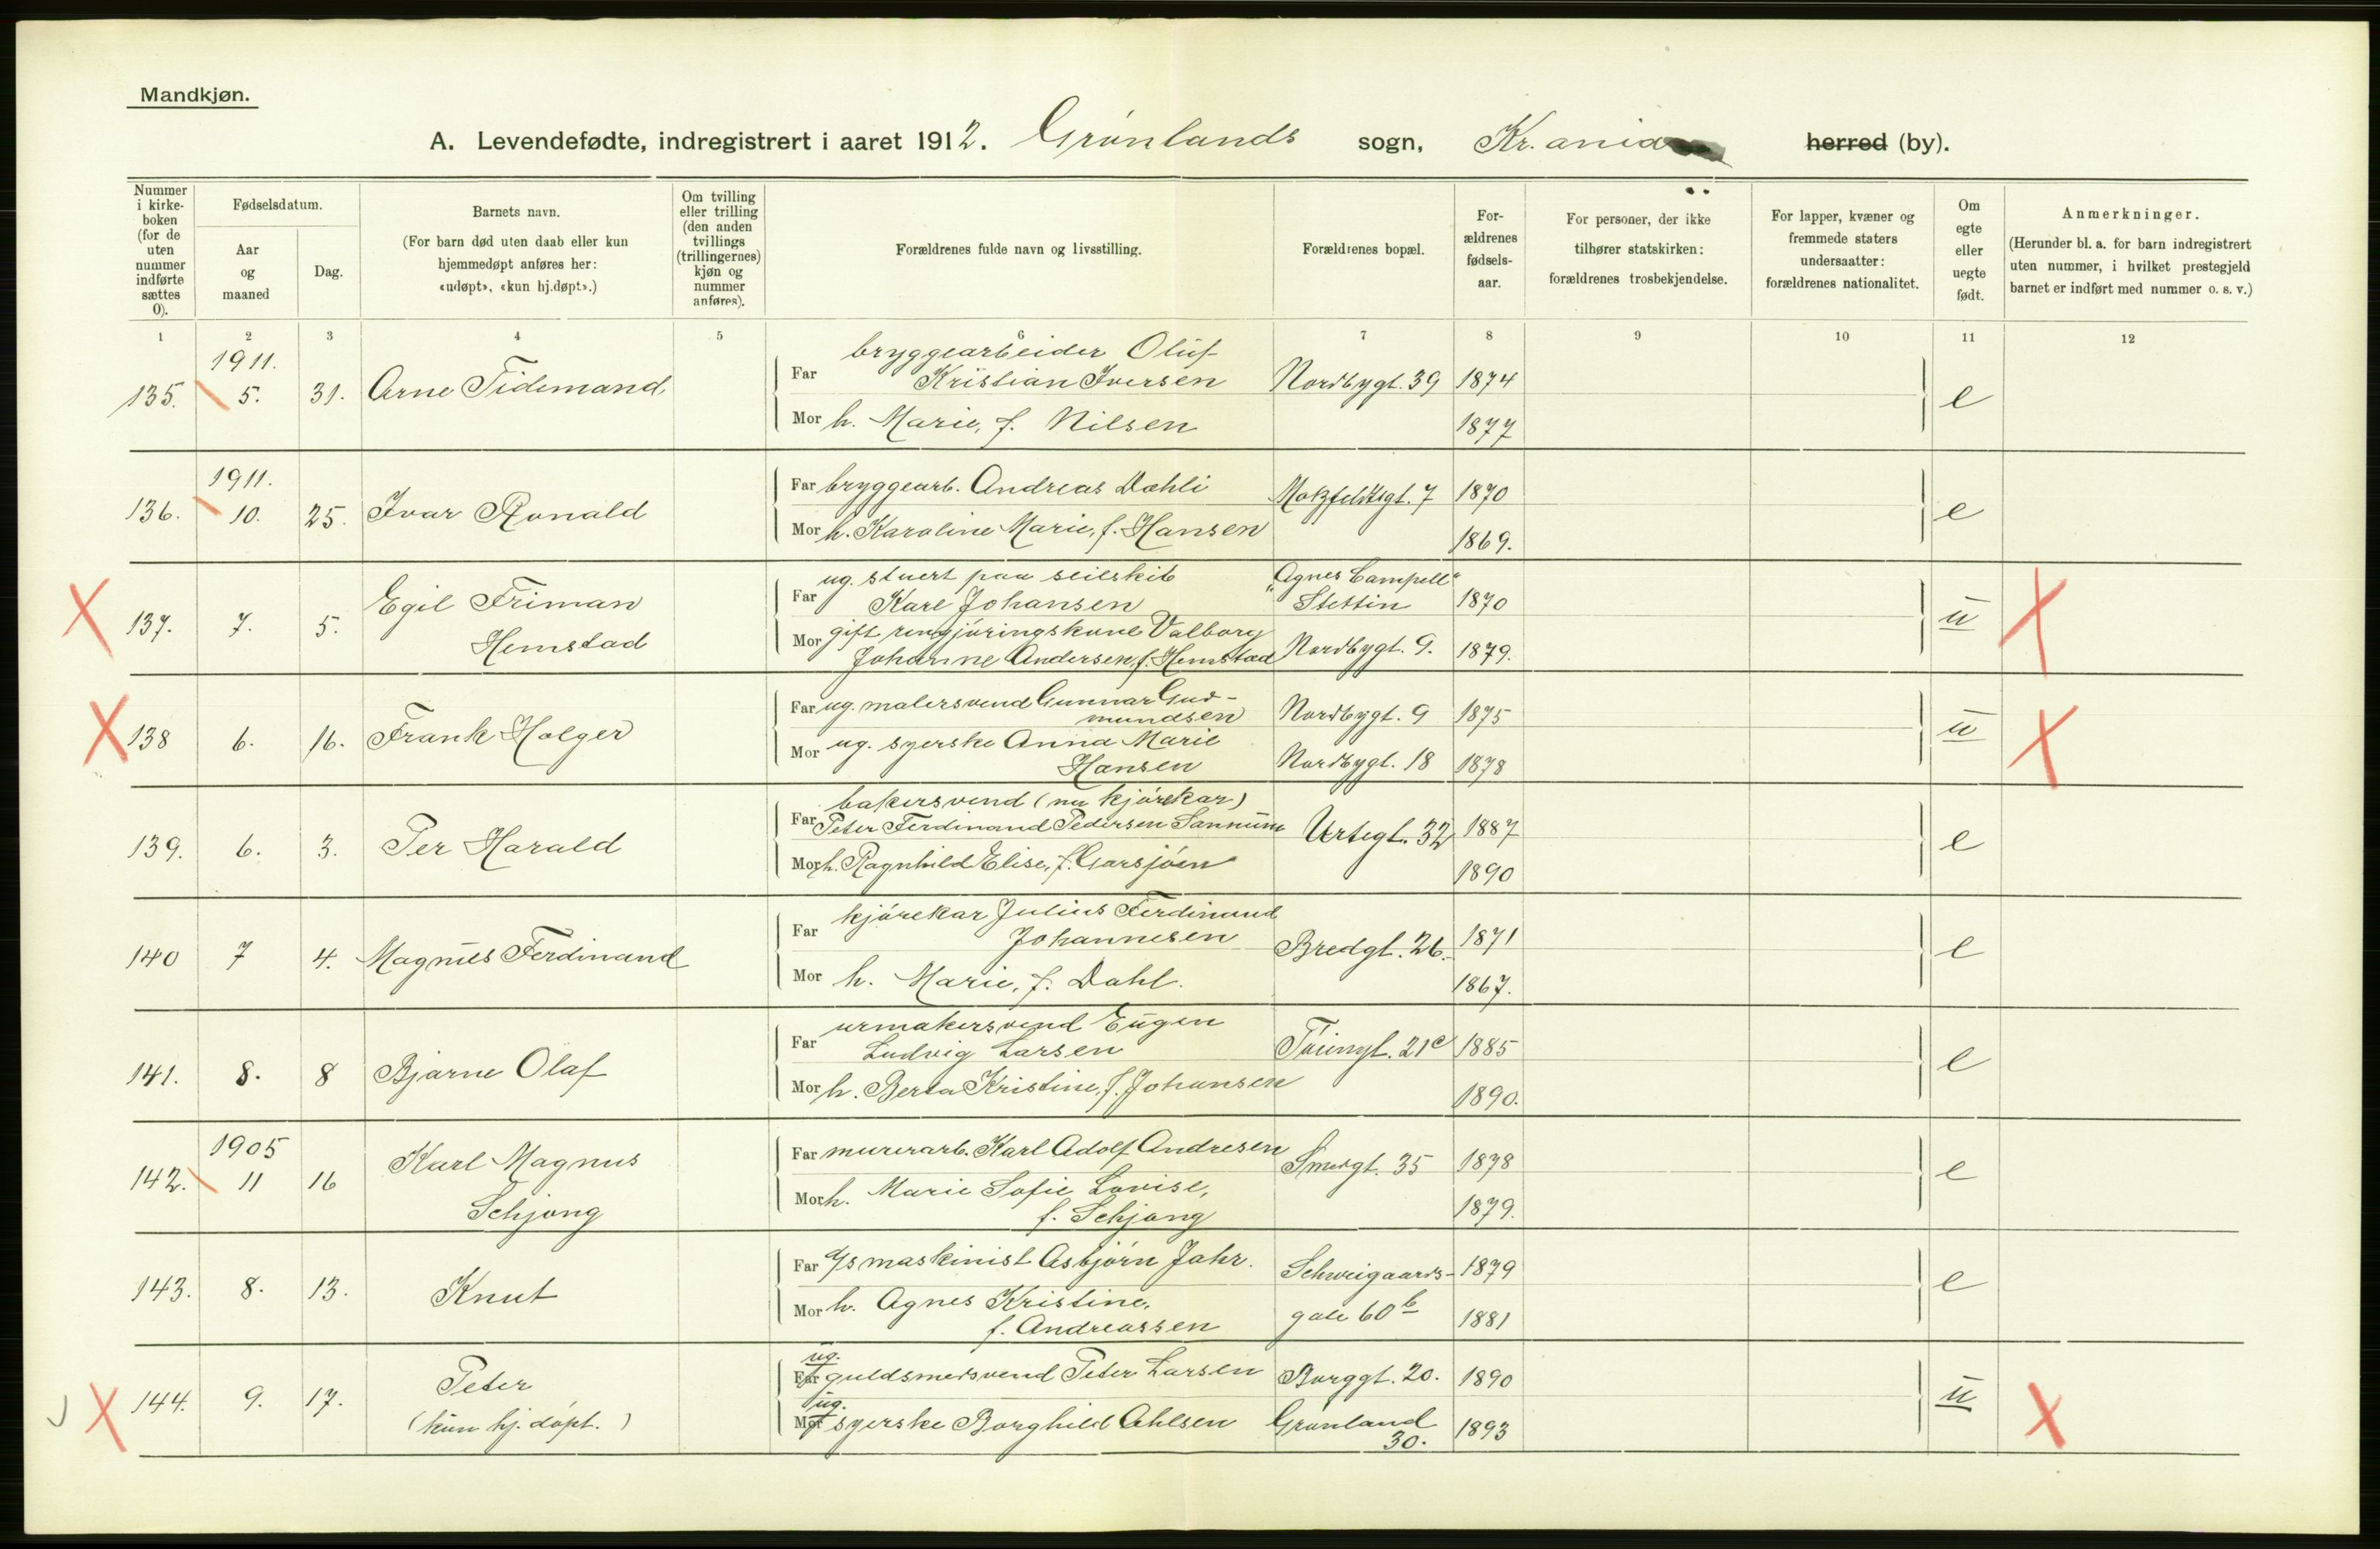 Mandkjøn.
A. Levendefødte, indregistrert i aaret 1912. Grønlands sogn, Kr.ania herred (by).
Nummer i kirke-boken (for de uten nummer indførte sættes 0).
Fødselsdatum.
Aar og maaned
Dag.
Barnets navn.
(For barn død uten daab eller kun hjemmedøpt anføres her: «udøpt», «kun hj.døpt».)
Om tvilling eller trilling (den anden tvillings (trillingernes) kjøn og nummer anføres).
Forældrenes fulde navn og livsstilling.
Forældrenes bopæl.
For-ældrenes fødsels-aar.
For personer, der ikke tilhører statskirken: forældrenes trosbekjendelse.
For lapper, kvæner og fremmede staters undersaatter: forældrenes nationalitet.
Om egte eller uegte født.
Anmerkninger.
(Herunder bl. a. for barn indregistrert uten nummer, i hvilket prestegjeld barnet er indført med nummer o. s. v.)
1 2 3 4 5 6 7 8 9 10 11 12
1911.
135. 5. 31. Arne Tidemand
Far bryggearbeider Oluf
Kristian Iversen Nordbygt. 39 1874
Mor h. Marie, f. Nilsen 1877
e
1911.
136. 10. 25. Ivar Ronald
Far bryggearb. Andreas Dahli Motzfeldtsgt. 7 1870
Mor h. Karoline Marie, f. Hansen 1869.
e
137. 7. 5. Egil Friman
Hemstad
Far ug. stuert paa seilskib "Agnes Campell"
Karl Johansen Stettin 1870
Mor gift rengjøringskone Valborg
Johanne Andersen, f. Hemstad Nordbygt. 9. 1879.
u
138 6. 16. Frank Holger
Far ug. malersvend Gunnar Gud-
mundsen Nordbygt. 9 1875
Mor ug. syerske Anna Marie
Hansen Nordbygt. 18 1878
u
139. 6. 3. Per Harald
bakersvend (nu kjørekar)
Far Peter Ferdinand Pedersen Sannum Urtegt. 32 1887
Mor h. Ragnhild Elise, f. Garsjøen 1890
e
140 7 4. Magnus Ferdinand
Far kjørekar Julius Ferdinand
Johannesen Bredgt. 26. 1871
Mor h. Marie, f. Dahl. 1867.
e
141. 8. 8 Bjarne Olaf
Far urmakersvend Eugen
Ludvig Larsen Tøiengt. 21c 1885
Mor h. Berta Kristine, f. Johansen 1890.
e
1905
142. 11 16 Karl Magnus
Schjong
Far murerarb. Karl Adolf Andresen Smedgt. 35 1878
Mor h. Marie Sofie Lovise,
f. Schjong 1879.
e
143. 8. 13. Knut
Far maskinist Asbjørn Jahr. Schweigaards- 1879
Mor h. Agnes Kristine, gate 60b 1881
f. Andreassen
e
144. 9. 17. Peter
(kun hj. døpt.)
ug.
Far guldsmedsvend Peter Larsen Borggt. 20. 1890
ug.
Mor syerske Borghild Ahlsen Grønland 1893
30.
u